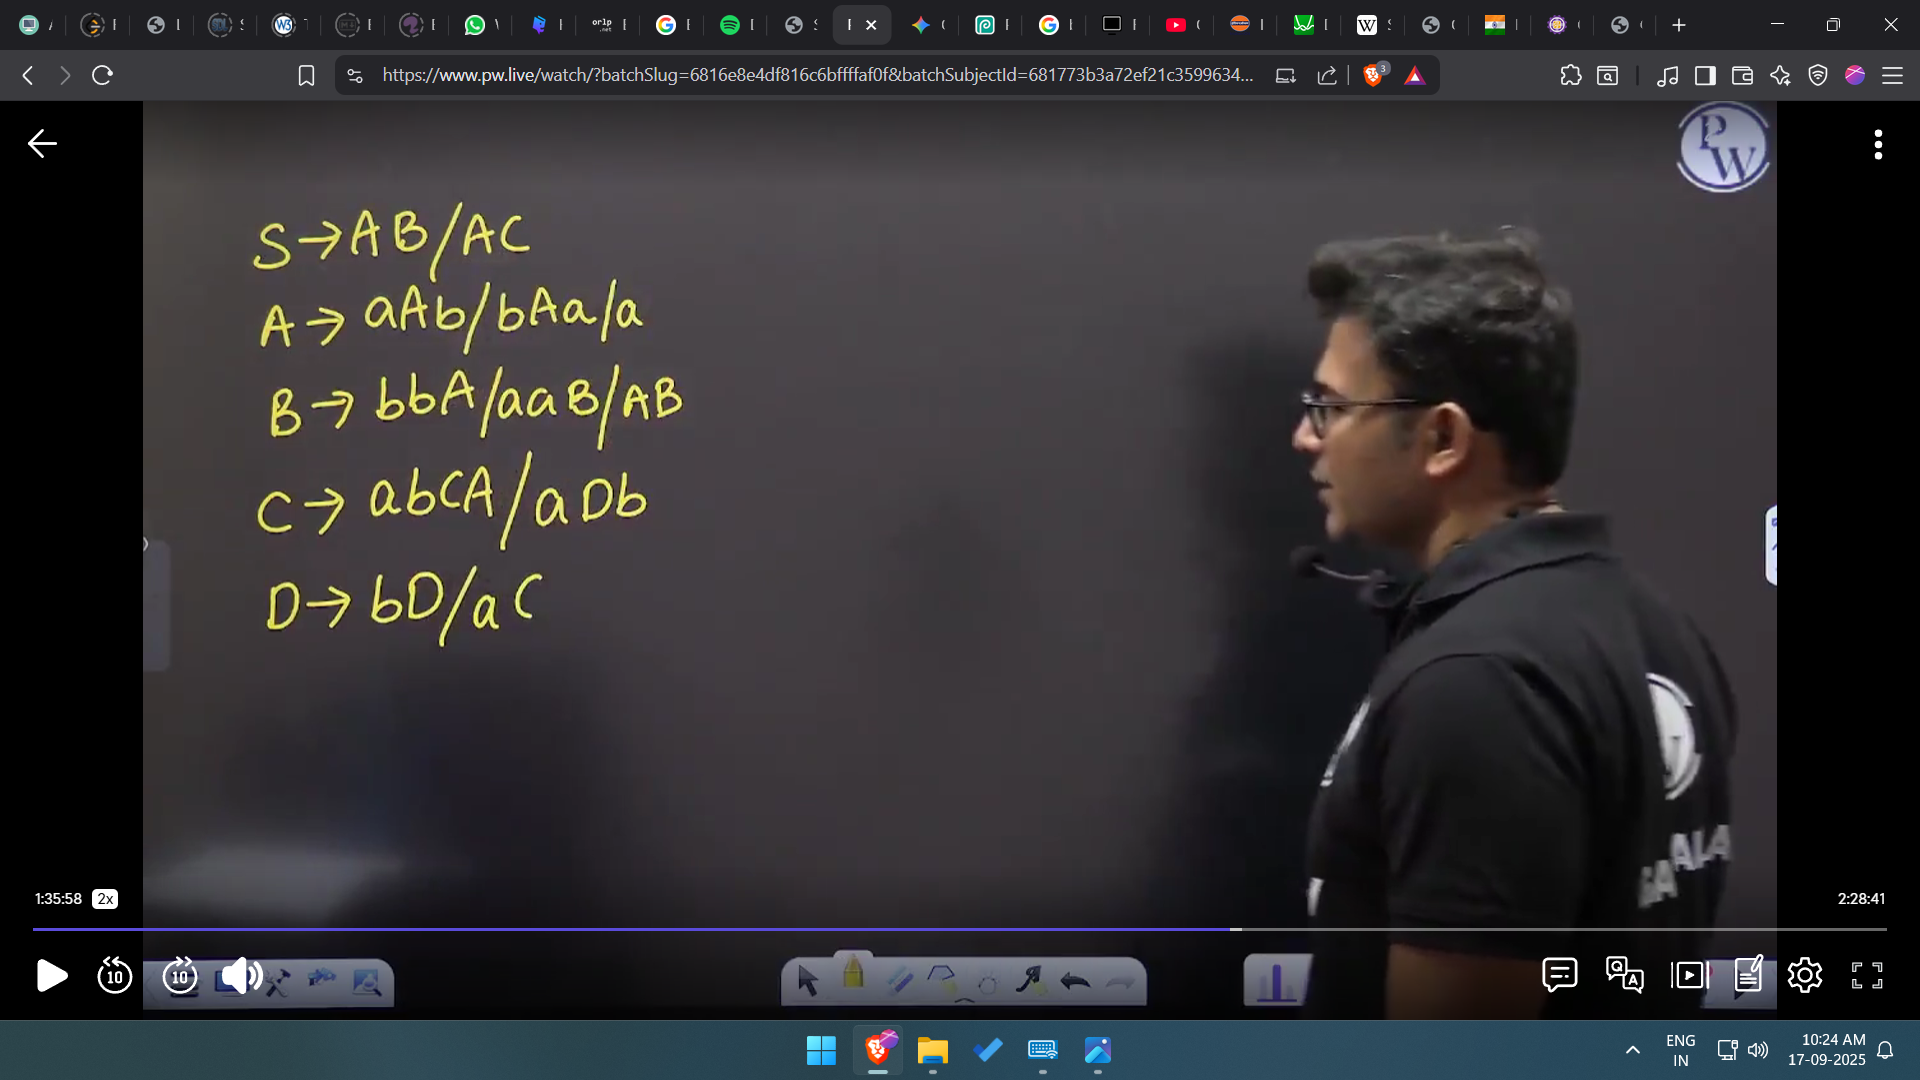 https://www.pw.live/watch/?batchSlug=6816e8e4df816c6bffffaf0f&batchSubjectId=681773b3a72ef21c3599634...
3
PW
S→AB/AC
A→aAb/bAa/a
B→bbA/aaB/AB
C→abCA/aDb
D→bD/aC
1:35:58 2x
2:28:41
10 10
ENG
IN
10:24 AM
17-09-2025